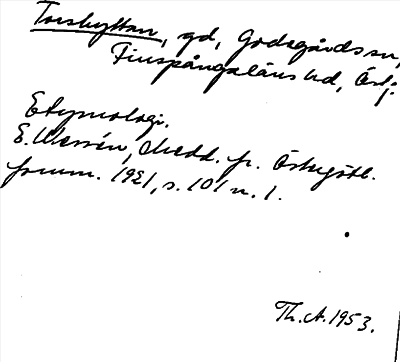 Torshyttan, gd, Godegårds sn,
Finspångaläns hd, Östg.
Etymologi.
E. Wessén, Medd. fr. Östergötl.
fornm. 1921, s. 101 n. 1.
Th. A. 1953.